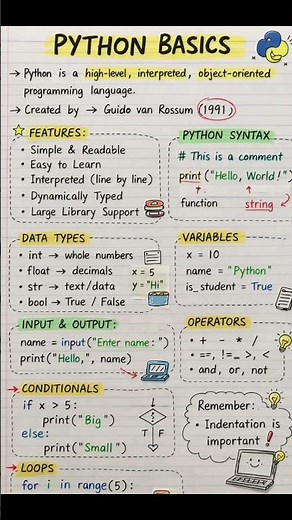 PYTHON BASICS
→ Python is a high-level, interpreted, object-oriented
programming language.
→ Created by → Guido van Rossum (1991)
FEATURES:
• Simple & Readable
• Easy to Learn
• Interpreted (line by line)
• Dynamically Typed
• Large Library Support
PYTHON SYNTAX
# This is a comment
print("Hello, World!")
function
string
DATA TYPES
• int → whole numbers
• float → decimals
• str → text/data
• bool → True / False
x = 5
y = "Hi"
VARIABLES
x = 10
name = "Python"
is_student = True
INPUT & OUTPUT:
name = input("Enter name:")
print("Hello,", name)
OPERATORS
• + - * /
• ==, !=, >, <
• and, or, not
→ CONDITIONALS
if x > 5:
print("Big")
else:
print("Small")
T F
Remember:
• Indentation is
important!
→ LOOPS
for i in range(5):